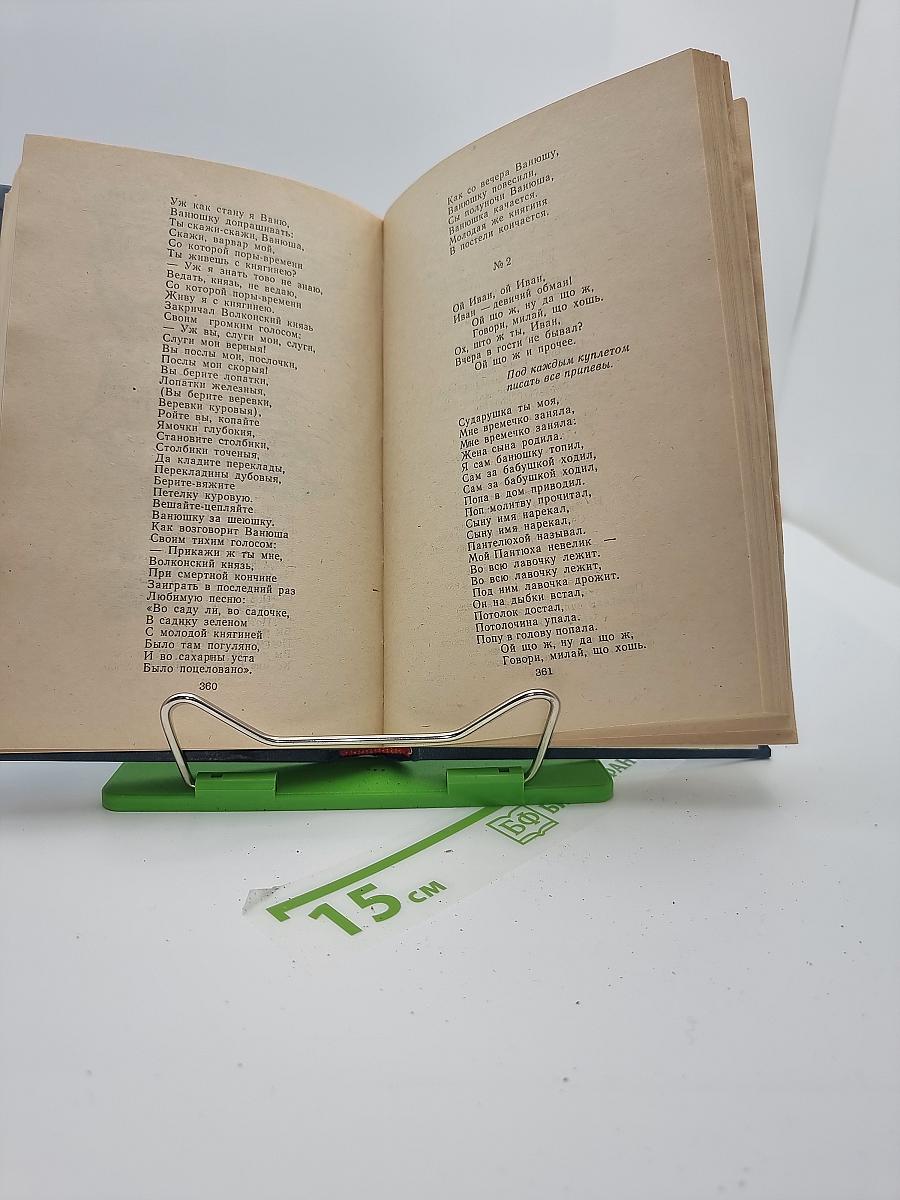 Уж как стану я Ваню,
Ванюшку допрашивать:
Ты скажи-скажи, Ванюша,
Скажи, варвар мой,
Со которой поры-времени
Ты живешь с княгинею?
— Уж я знать тово не знаю,
Ведать, князь, не ведаю,
Со которой поры-времени
Живу я с княгинею.
Закричал Волконский князь
Своим громким голосом:
— Уж вы, слуги мои, слуги,
Слуги мои верныя!
Вы послы мои, послочки,
Послы мои скорыя!
Вы берите лопатки,
Лопатки железныя,
(Вы берите веревки,
Веревки куровыя),
Ройте вы, копайте
Ямочки глубокия,
Становите столбики,
Столбики точеныя,
Да кладите переклады,
Перекладины дубовыя,
Берите-вяжите
Петелку куровую.
Вешайте-цепляйте
Ванюшку за шеюшку.
Как возговорит Ванюша
Своим тихим голосом:
— Прикажи ж ты мне,
Волконский князь,
При смертной кончине
Заиграть в последний раз
Любимую песню:
«Во саду ли, во садочке,
В садику зеленом
С молодой княгиней
Было там погуляно,
И во сахарны уста
Было поцеловано».
360
Как со вечера Ванюшу,
Ванюшку повесили,
Сы полуночи Ванюша,
Ванюшка качается.
Молодая же княгиня
В постели кончается.
№ 2
Ой Иван, ой Иван,
Иван — девичий обман!
Ой що ж, ну да що ж,
Говори, милай, що хошь.
Ох, што ж ты, Иван,
Вчера в гости не бывал?
Ой що ж и прочее.
Под каждым куплетом
писать все припевы.
Сударушка ты моя,
Мне времечко заняла,
Мне времечко заняла:
Жена сына родила.
Я сам банюшку топил,
Сам за бабушкой ходил,
Сам за бабушкой ходил,
Попа в дом приводил.
Поп молитву прочитал,
Сыну имя нарекал,
Сыну имя нарекал,
Пантелюхой называл.
Мой Пантюха невелик —
Во всю лавочку лежит.
Во всю лавочку лежит,
Под ним лавочка дрожит.
Он на дыбки встал,
Потолок достал,
Потолочина упала.
Попу в голову попала.
Ой що ж, ну да що ж,
Говори, милай, що хошь.
361
БФ
15 см